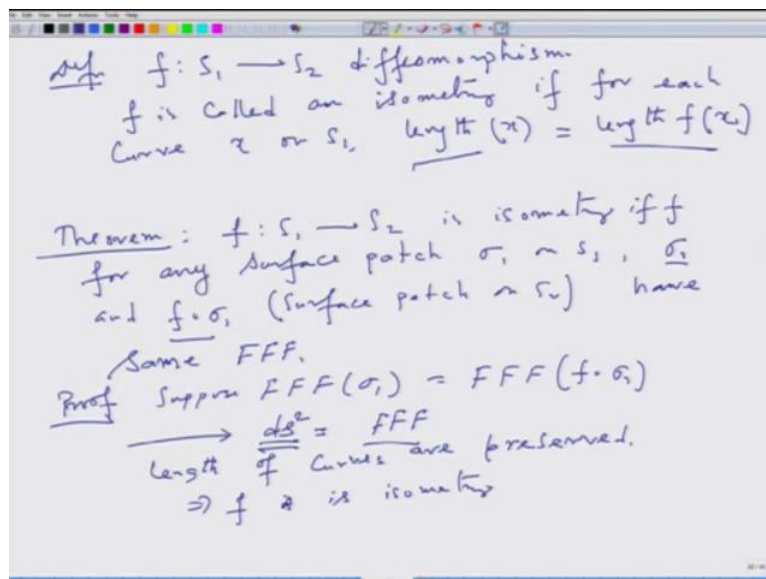 Defn f : S₁ → S₂ diffeomorphism.
f is called an isometry if for each
Curve r on S₁, length (r) = length f(r)
Theorem : f : S₁ → S₂ is isometry iff
for any surface patch σ₁ on S₁, σ₁
and f∘σ₁ (surface patch on S₂) have
same FFF.
Proof Suppose FFF(σ₁) = FFF(f∘σ₁)
→ ds² = FFF
Length of Curves are preserved.
⇒ f is isometry